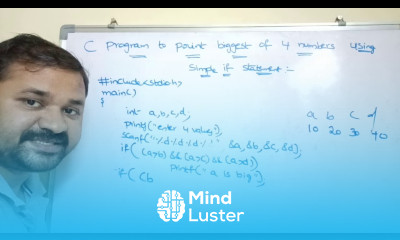 C Program to print biggest of 4 numbers using
Simple if statement :-
#include<stdio.h>
main()
{
int a,b,c,d,
printf("enter 4 values");
scanf("%d%d%d%d" &a,&b,&c,&d);
if( (a>b) && (a>c) && (a>d))
printf("a is big");
if( (b
a b c d
10 20 30 40
Mind
Luster